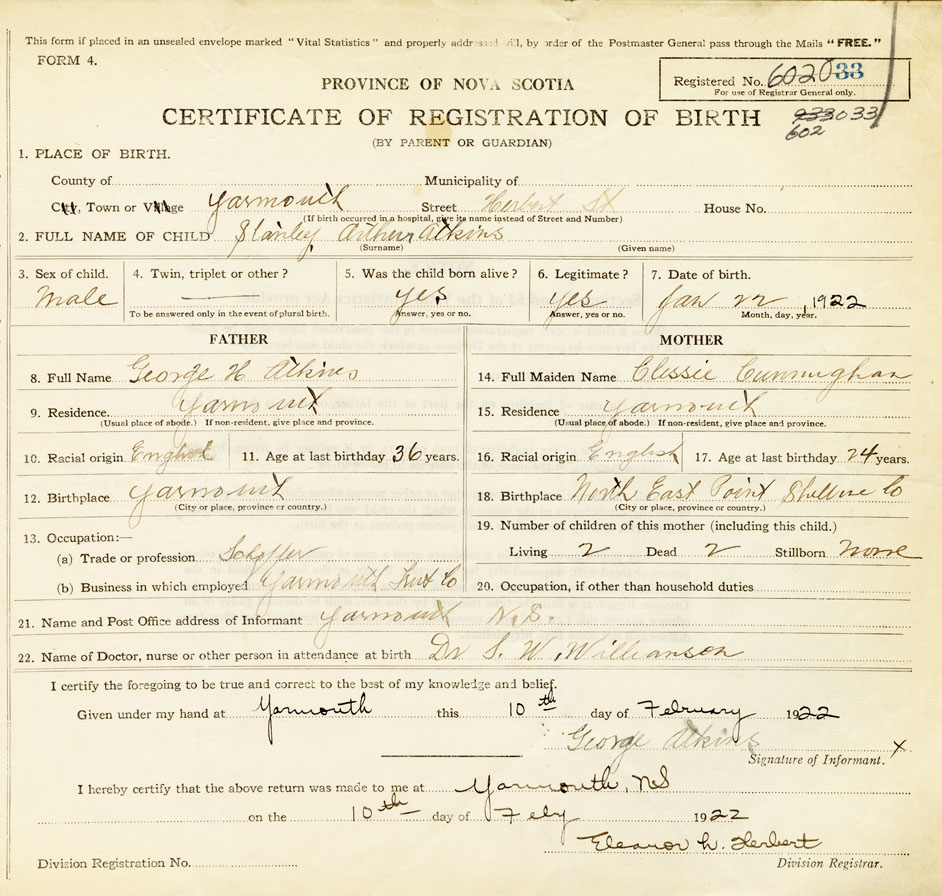 This form if placed in an unsealed envelope marked "Vital Statistics" and properly addressed will, by order of the Postmaster General pass through the Mails "FREE."
FORM 4.
Registered No. 602033
For use of Registrar General only.
PROVINCE OF NOVA SCOTIA
CERTIFICATE OF REGISTRATION OF BIRTH
933033
602
(BY PARENT OR GUARDIAN)
1. PLACE OF BIRTH.
County of Municipality of
City, Town or Village Yarmouth Street Herbert St House No.
(If birth occurred in a hospital, give its name instead of Street and Number)
2. FULL NAME OF CHILD Stanley Arthur Atkins
(Surname) (Given name)
3. Sex of child. 4. Twin, triplet or other? 5. Was the child born alive? 6. Legitimate? 7. Date of birth.
Male — yes yes Jan 22, 1922
To be answered only in the event of plural birth. Answer, yes or no. Answer, yes or no. Month, day, year.
FATHER MOTHER
8. Full Name George H Atkins 14. Full Maiden Name Clessie Cunningham
9. Residence. Yarmouth 15. Residence Yarmouth
(Usual place of abode.) If non-resident, give place and province. (Usual place of abode.) If non-resident, give place and province.
10. Racial origin English 11. Age at last birthday 36 years. 16. Racial origin English 17. Age at last birthday 24 years.
12. Birthplace Yarmouth 18. Birthplace North East Point Co
(City or place, province or country.) (City or place, province or country.)
13. Occupation:— 19. Number of children of this mother (including this child.)
(a) Trade or profession Living 2 Dead 2 Stillborn None
(b) Business in which employed Yarmouth Co 20. Occupation, if other than household duties
21. Name and Post Office address of Informant Yarmouth N.S.
22. Name of Doctor, nurse or other person in attendance at birth Dr S. W. Williamson
I certify the foregoing to be true and correct to the best of my knowledge and belief.
Given under my hand at Yarmouth this 10th day of February 1922
George Atkins X
Signature of Informant.
I hereby certify that the above return was made to me at Yarmouth, NS
on the 10th day of Feby 1922
Eleanor W. Herbert
Division Registration No. Division Registrar.